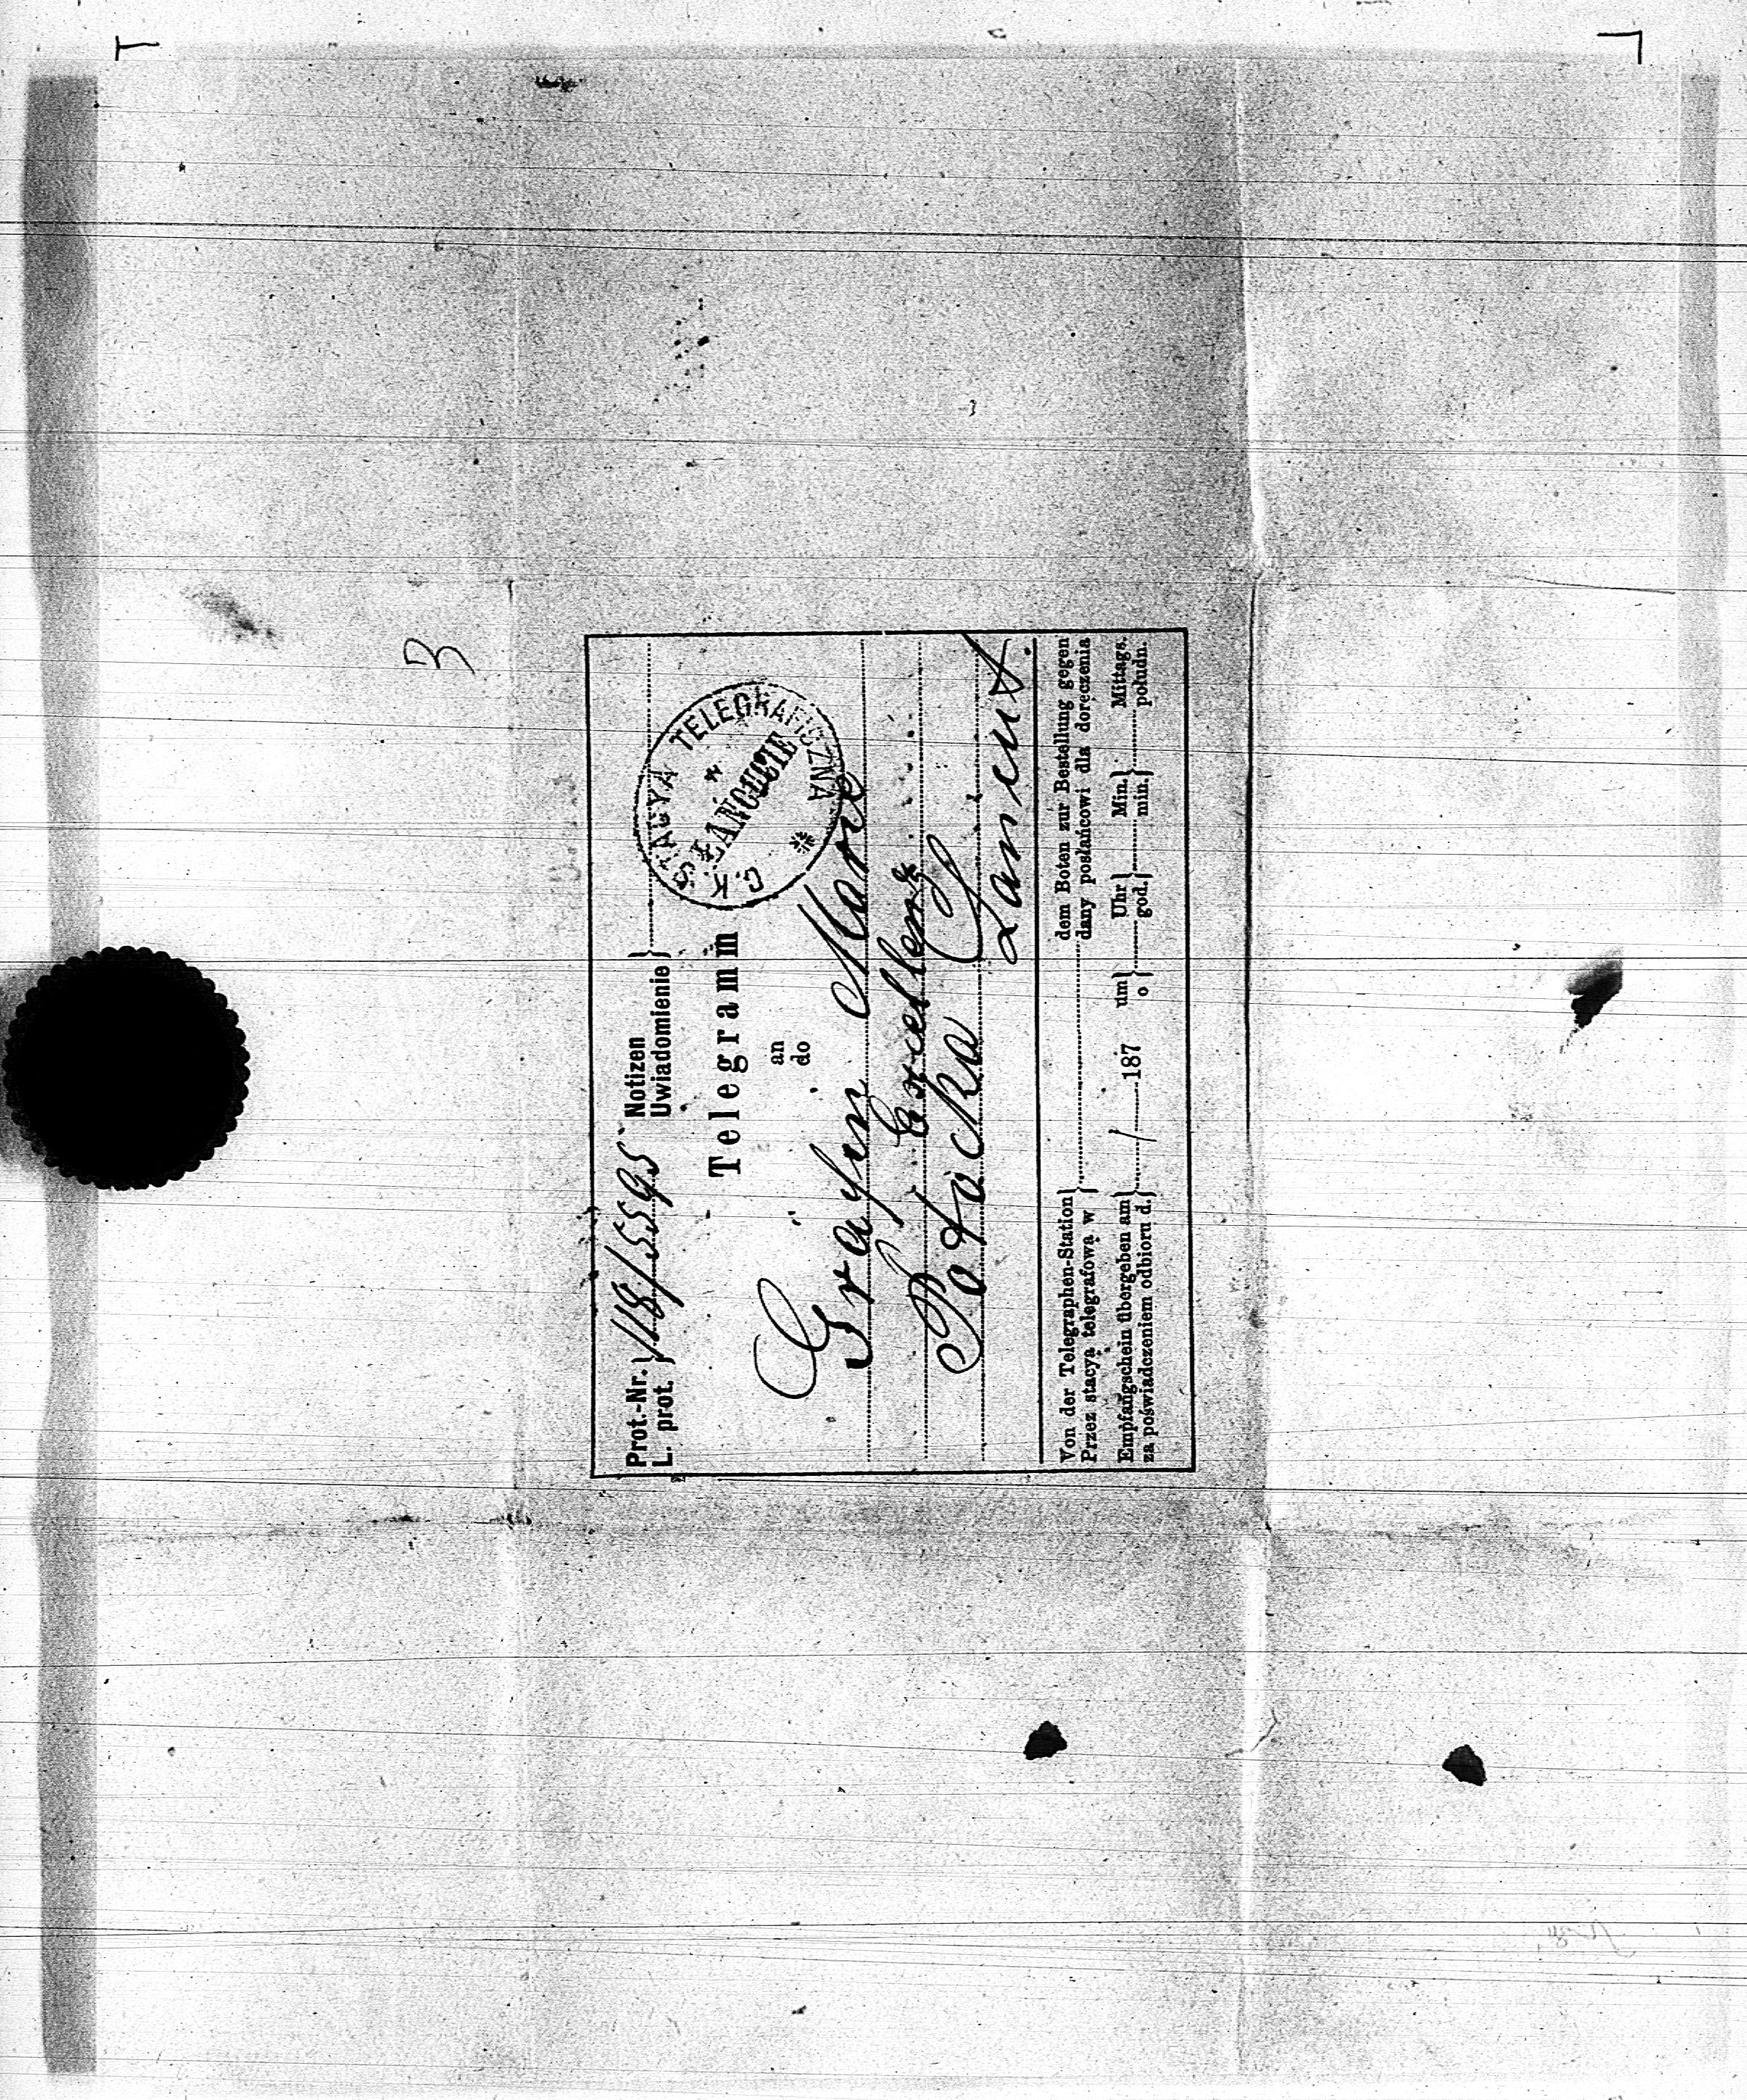 3
Prot.-Nr. } 118/5595 Notizen }
L. prot. } Uwiadomienie }
C. K. STACYA TELEGRAFICZNA
* ŁAŃCUCIE
Telegramm
an
do
Gräfin Marie
Excellenz
Potocka
Lancut.
Von der Telegraphen-Station } dem Boten zur Bestellung gegen
Przez stacyą telegrafową w } dany posłańcowi dla doręczenia
Empfangschein übergeben am } / 187 um } Uhr } Min. } Mittags.
za poświadczeniem odbioru d. } o } god. } min. } południ.